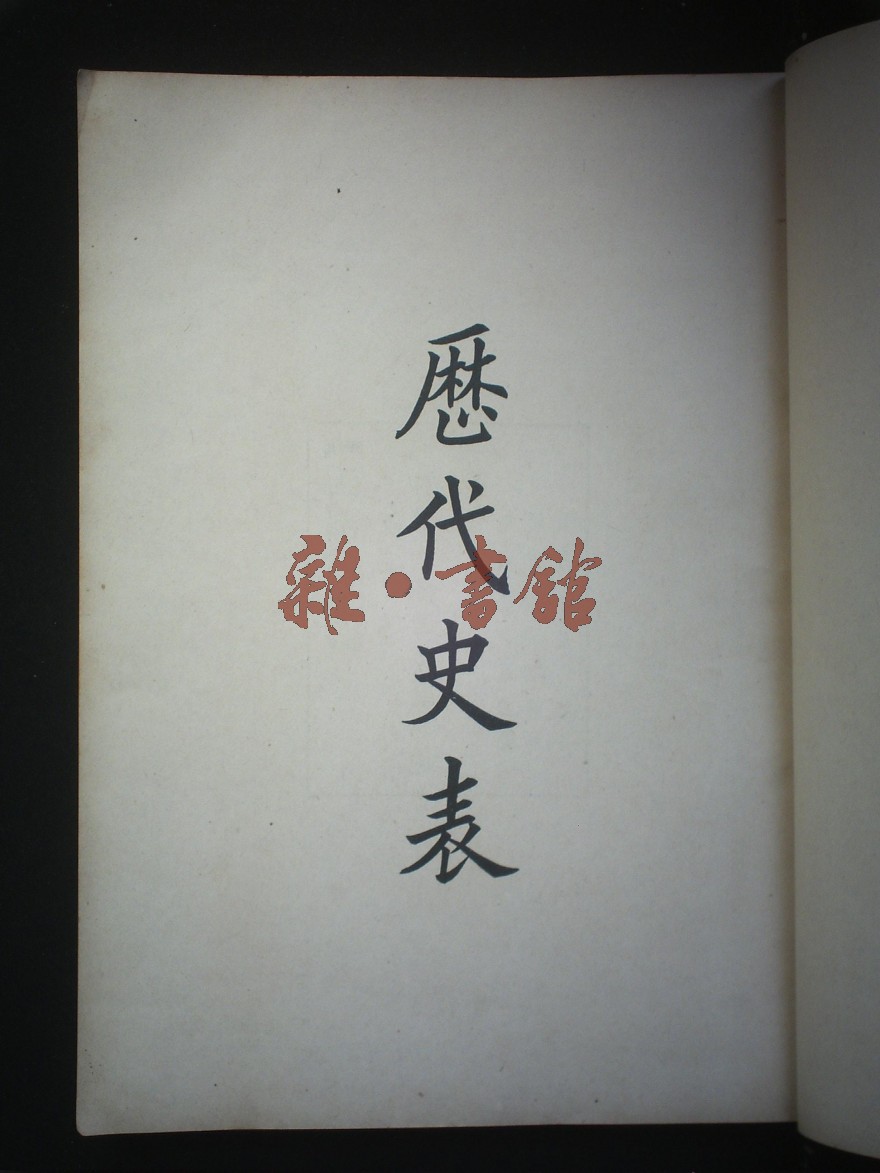 歴代史表
雜·書館